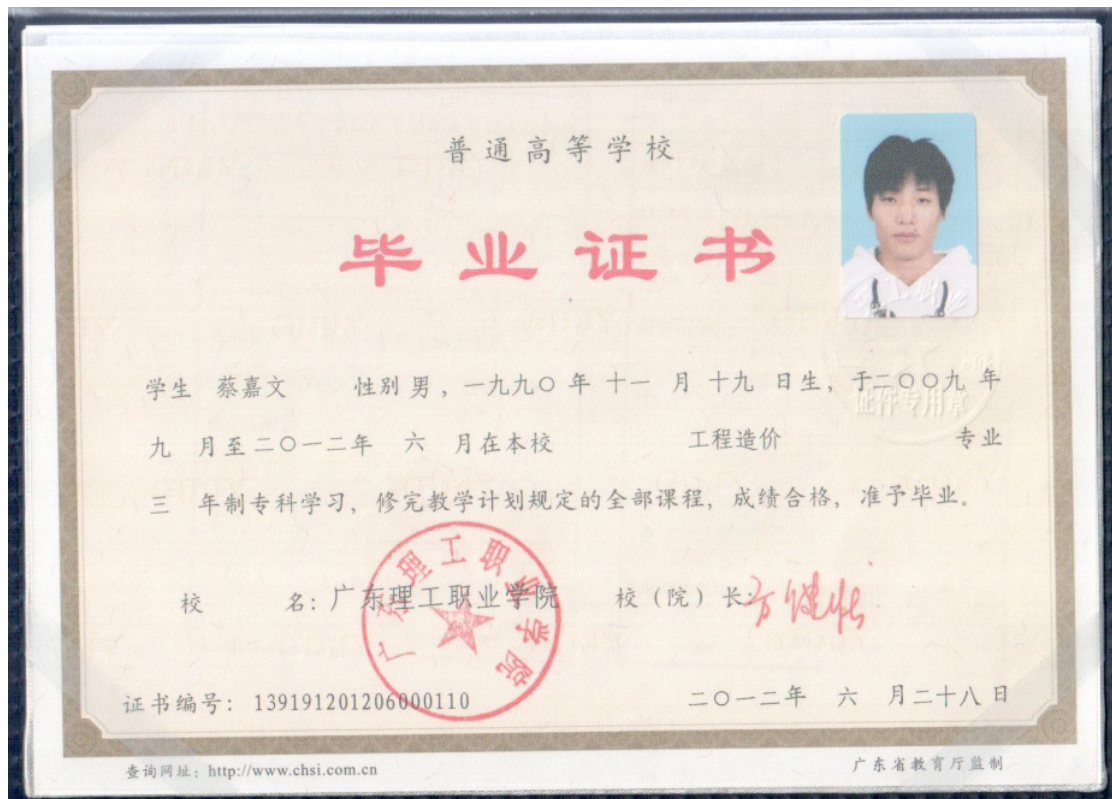 普通高等学校
毕业证书
学生 蔡嘉文 性别 男，一九九〇 年 十一 月 十九 日生，于二〇〇九 年
九 月至二〇一二年 六 月在本校 工程造价 专业
三 年制专科学习，修完教学计划规定的全部课程，成绩合格，准予毕业。
证件专用章
校 名：广东理工职业学院 校（院）长：
广东理工职业学院
证书编号：139191201206000110 二〇一二年 六 月二十八日
查询网址：http://www.chsi.com.cn 广东省教育厅监制